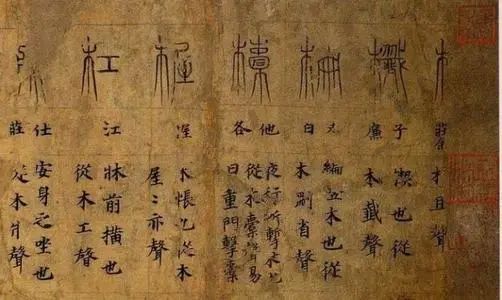 莊余
木且聲
櫼
子廉
楔也從
木韱聲
柵
叉白
編立木也從
木刪省聲
欜
他各
夜行所擊木也
從木橐聲易
曰重門擊欜
楃
渥
木帳也從木
屋屋亦聲
杠
江
牀前橫也
從木工聲
牀
仕莊
安身之坐也
從木爿聲